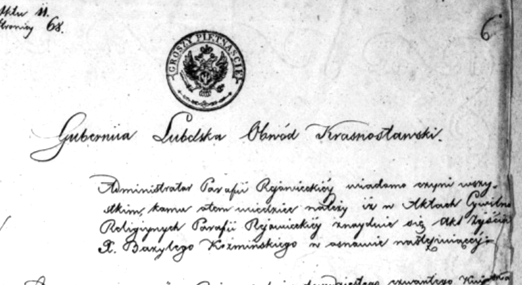 Aktu 11.
Stronicy 68.
6
GROSZY PIETNASCIE
Guberniia Lubelska Obwód Krasnostawski.
Administrator Parafii Rejowieckiéy wiadomo czyni wszy-
stkim, komu otem wiedziec należy iż w Aktach Cywilno
Religiynych Parafii Rejowieckiéy znayduie się Akt Zyścia
X. Bazylego Koźminskiego w osnowie następuiącey: